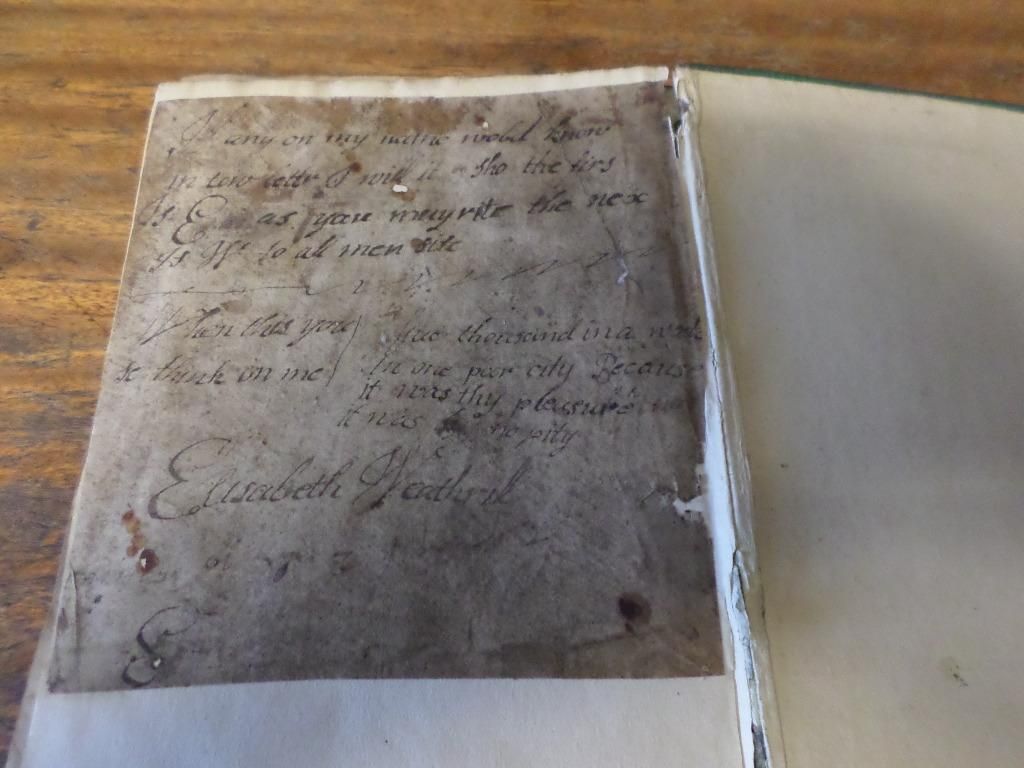 If any on my name would know
in tow lettr I will it sho the firs
is E as you may rite the nex
ys W to all men site
When this you
se think on me
five thousand in a week
In one poor city Because
it was thy pleasure
it was no pity
Elisabeth Weathrill
E